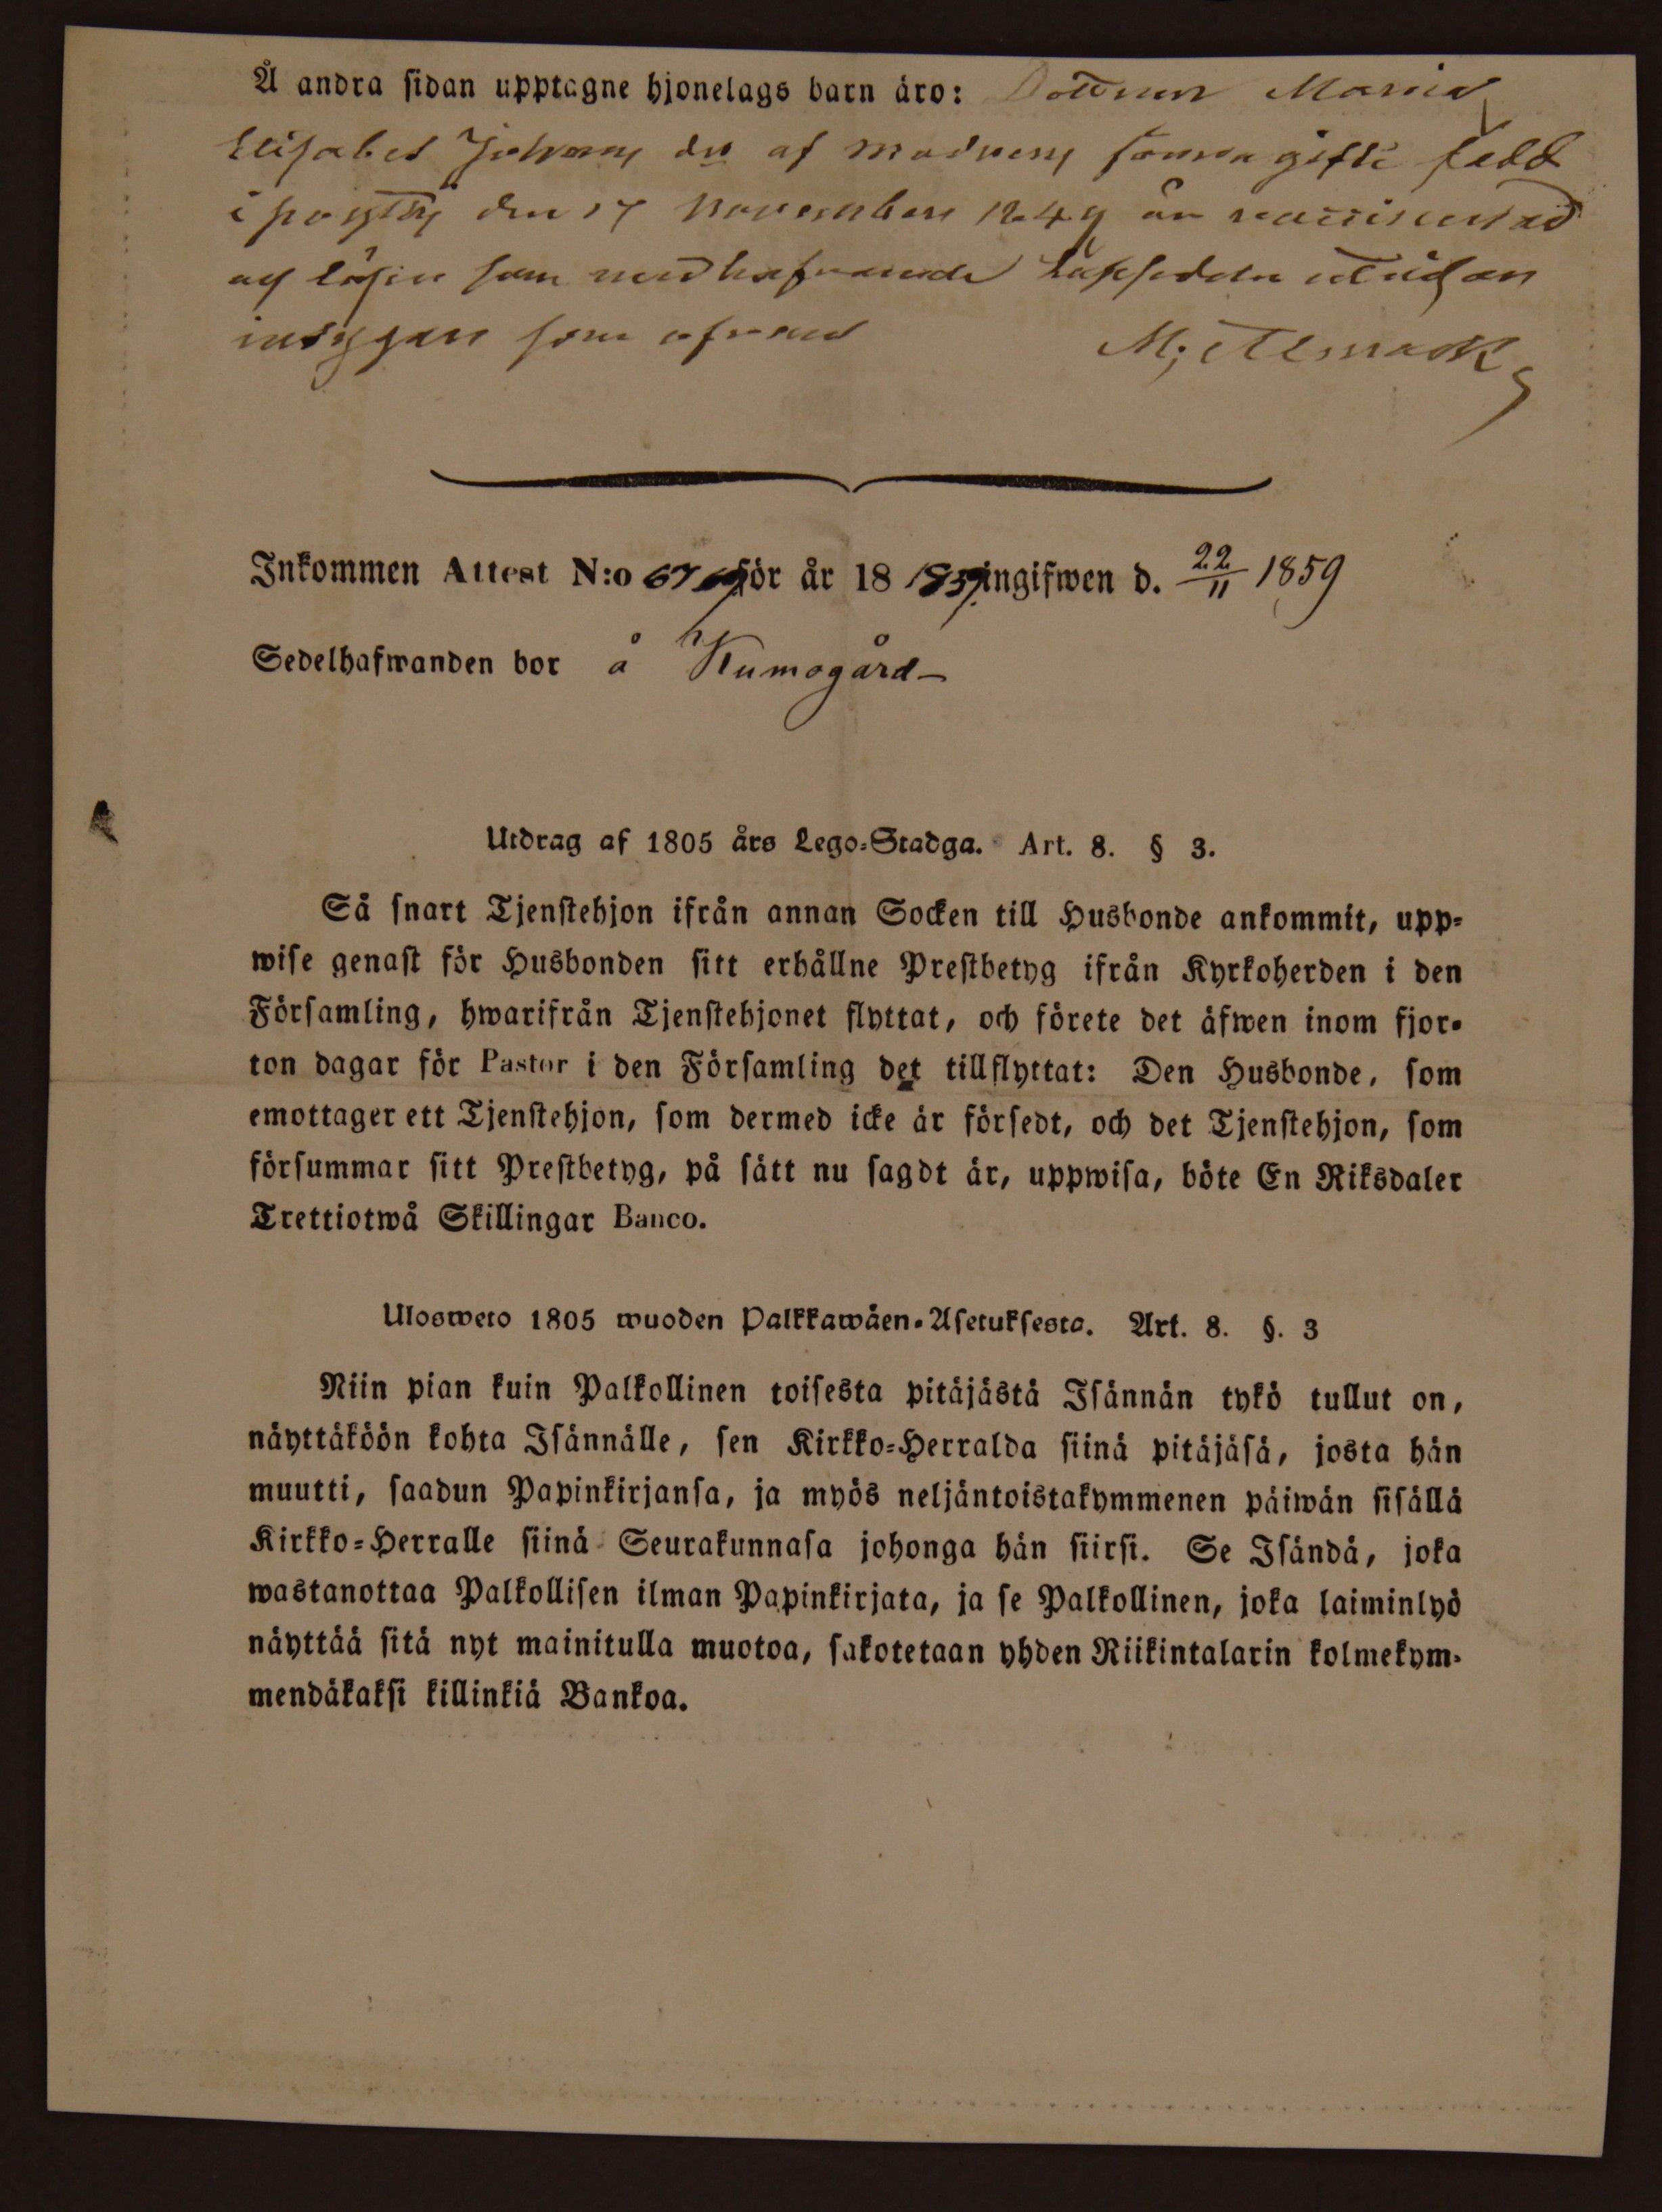 Å andra sidan upptagne hjonelags barn äro: Dottren Maria
Elisabet af född
i den 17 November 1849 är vaccinerad
som
som M; Almark
Inkommen Attest N:o för år 18 1859 ingifwen d. 22/11 1859
Sedelhafwanden bor å Kumogård
Utdrag af 1805 års Lego-Stadga. Art. 8. § 3.
Så snart Tjenstehjon ifrån annan Socken till Husbonde ankommit, upp-
wise genast för Husbonden sitt erhållne Prestbetyg ifrån Kyrkoherden i den
Församling, hwarifrån Tjenstehjonet flyttat, och förete det äfwen inom fjor-
ton dagar för Pastor i den Församling det tillflyttat: Den Husbonde, som
emottager ett Tjenstehjon, som dermed icke är försedt, och det Tjenstehjon, som
försummar sitt Prestbetyg, på sätt nu sagdt är, uppwisa, böte En Riksdaler
Trettiotwå Skillingar Banco.
Ulosweto 1805 wuoden Palkkawäen-Asetuksesta. Art. 8. §. 3
Niin pian kuin Palkollinen toisesta pitäjästä Isännän tykö tullut on,
näyttäköön kohta Isännälle, sen Kirkko-Herralda siinä pitäjäsä, josta hän
muutti, saadun Papinkirjansa, ja myös neljäntoistakymmenen päiwän sisällä
Kirkko-Herralle siinä Seurakunnasa johonga hän siirsi. Se Isändä, joka
wastanottaa Palkollisen ilman Papinkirjata, ja se Palkollinen, joka laiminlyö
näyttää sitä nyt mainitulla muotoa, sakotetaan yhden Riikintalarin kolmekym-
mendäkaksi killinkiä Bankoa.